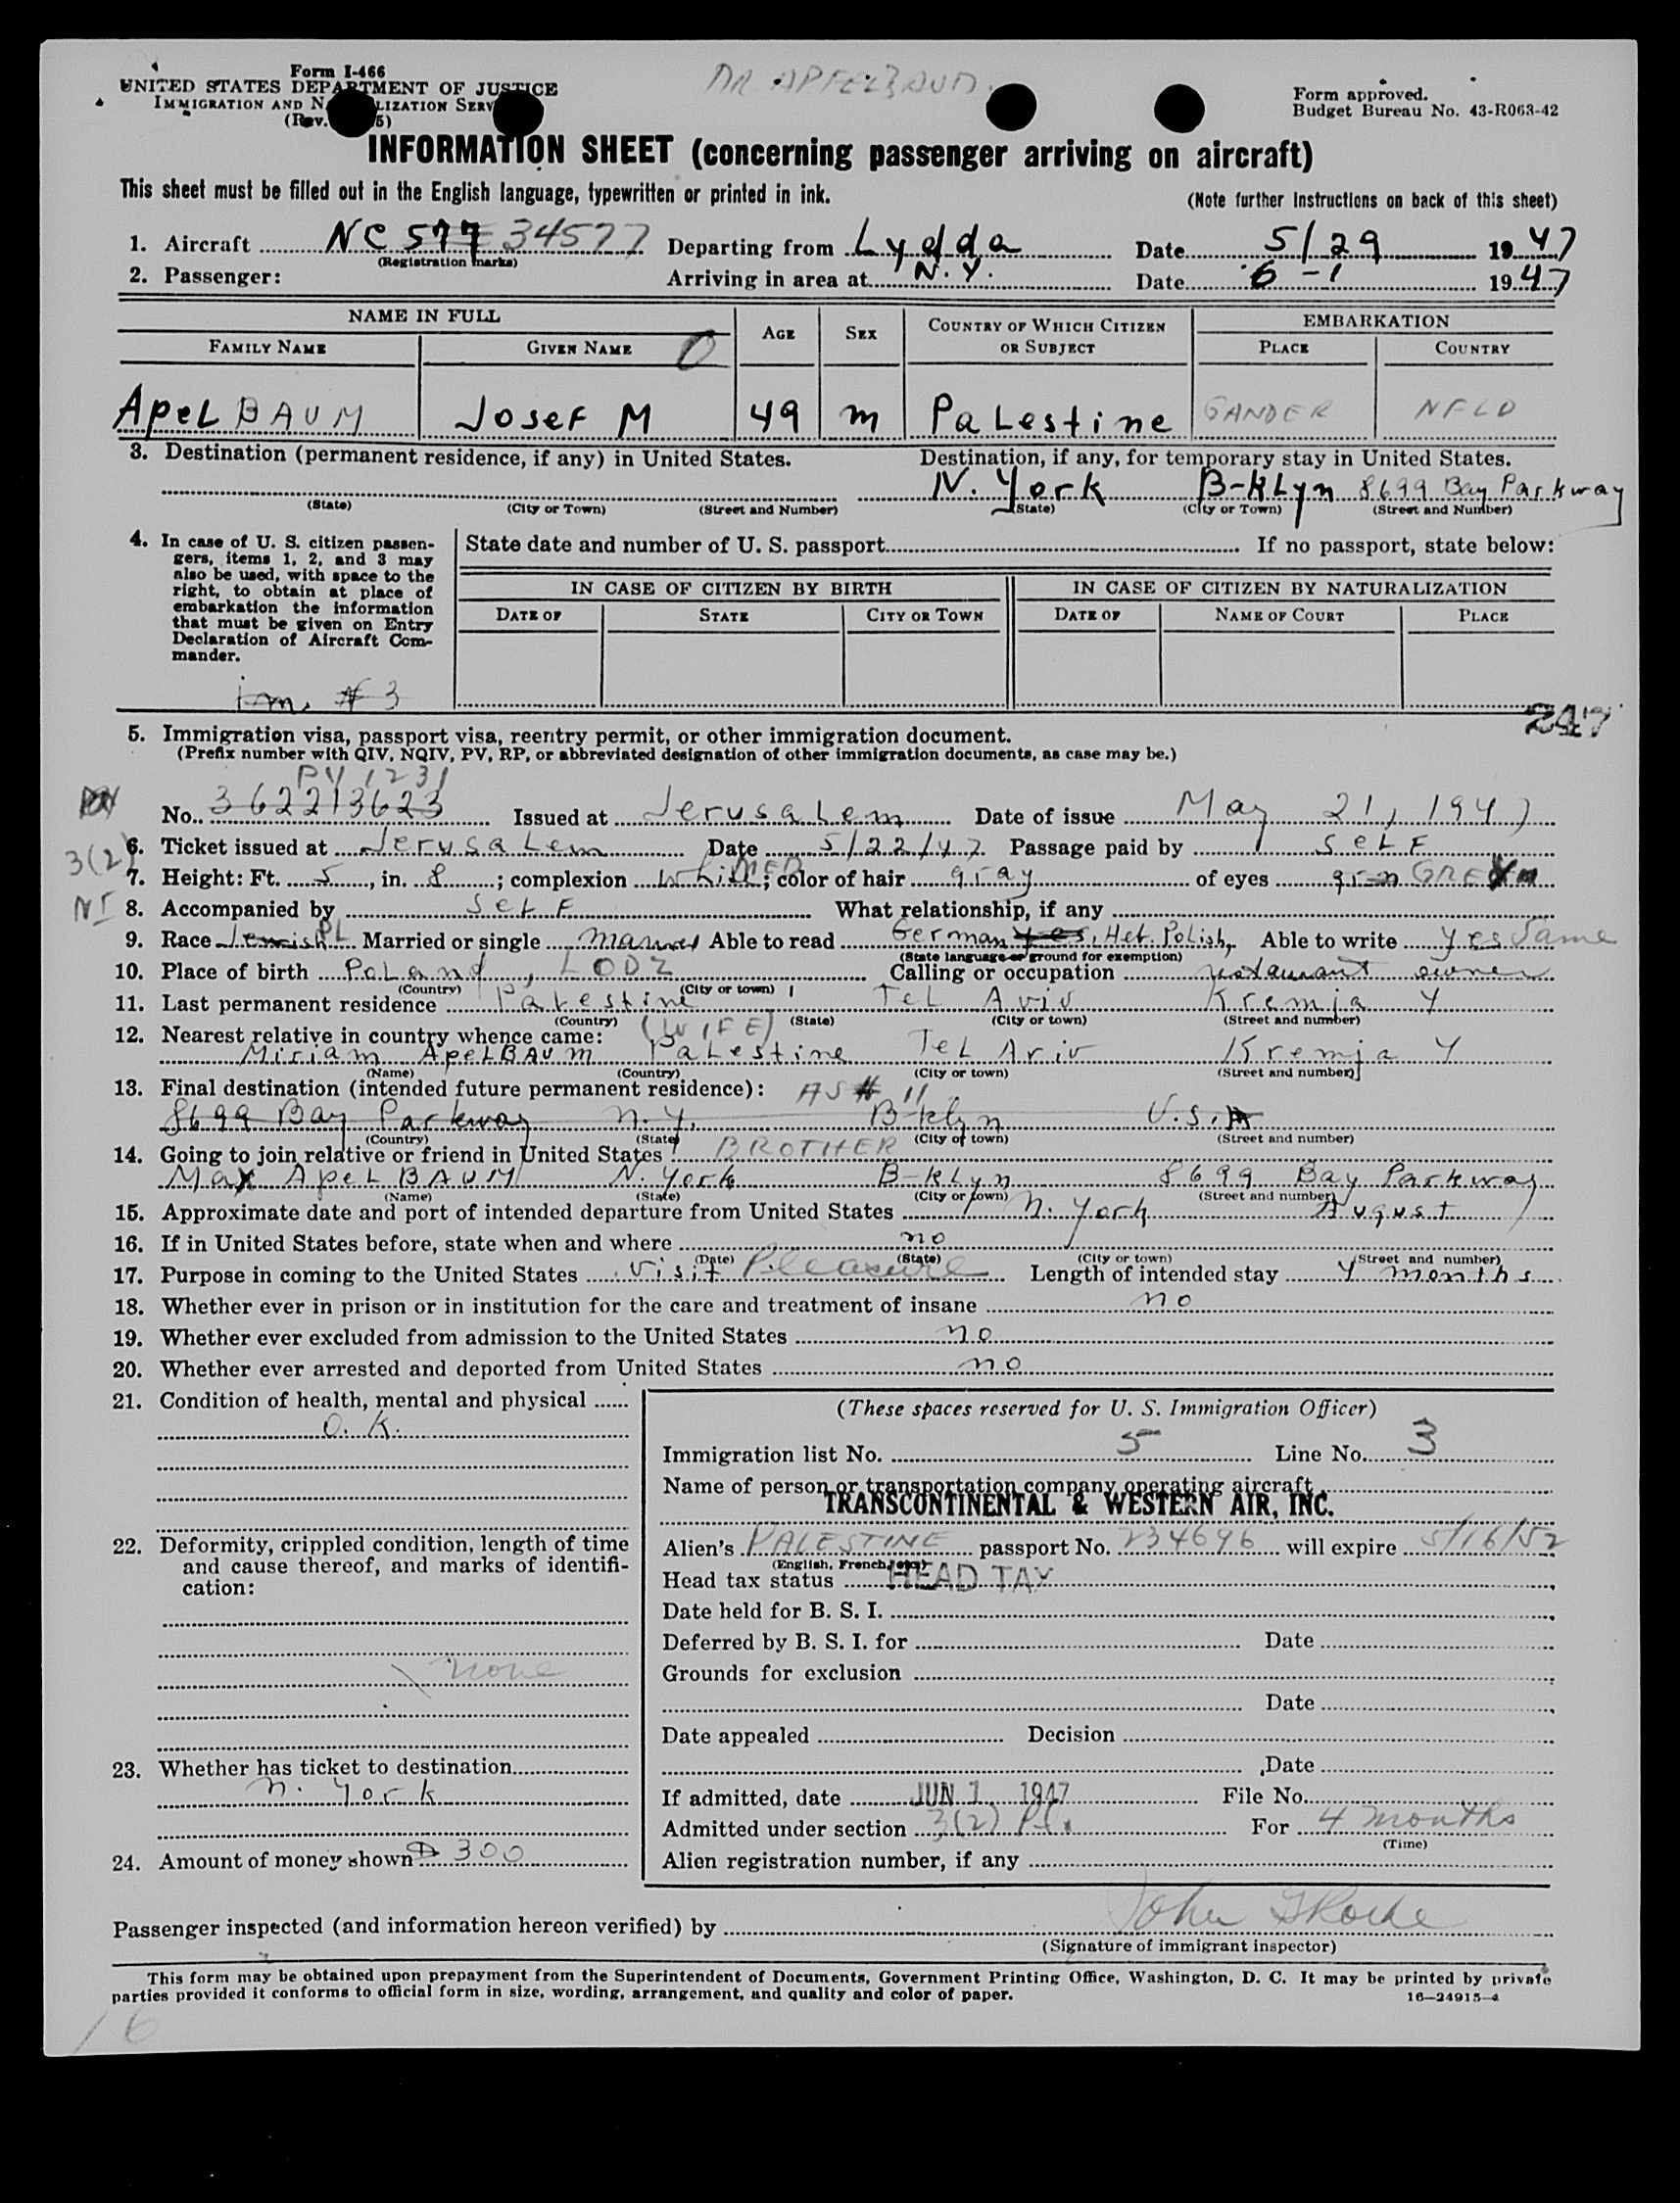 Form I-466
UNITED STATES DEPARTMENT OF JUSTICE
DR APFELBAUM.
Form approved.
Budget Bureau No. 43-R063-42
INFORMATION SHEET (concerning passenger arriving on aircraft)
This sheet must be filled out in the English language, typewritten or printed in ink.
(Note further instructions on back of this sheet)
1. Aircraft NC 577 34577 Departing from Lydda Date 5/29 1947
(Registration marks)
2. Passenger: Arriving in area at N.Y. Date 6-1 1947
NAME IN FULL AGE SEX COUNTRY OF WHICH CITIZEN OR SUBJECT EMBARKATION
FAMILY NAME GIVEN NAME PLACE COUNTRY
ApeLBAUM Josef M 49 m PaLestine GANDER NFLD
3. Destination (permanent residence, if any) in United States. Destination, if any, for temporary stay in United States.
N. York B-kLyn 8699 Bay Parkway
(State) (City or Town) (Street and Number) (State) (City or Town) (Street and Number)
4. In case of U. S. citizen passengers, items 1, 2, and 3 may also be used, with space to the right, to obtain at place of embarkation the information that must be given on Entry Declaration of Aircraft Commander.
State date and number of U. S. passport If no passport, state below:
IN CASE OF CITIZEN BY BIRTH IN CASE OF CITIZEN BY NATURALIZATION
DATE OF STATE CITY OR TOWN DATE OF NAME OF COURT PLACE
im. # 3
247
5. Immigration visa, passport visa, reentry permit, or other immigration document.
(Prefix number with QIV, NQIV, PV, RP, or abbreviated designation of other immigration documents, as case may be.)
PV 1231
No. 362213623 Issued at JerusaLem Date of issue May 21, 1947
3(2)
6. Ticket issued at JerusaLem Date 5/22/47 Passage paid by SeLF
7. Height: Ft. 5, in. 8; complexion White MED; color of hair gray of eyes
8. Accompanied by SeLF What relationship, if any
9. Race Jewish PL Married or single married Able to read German yes, Heb. Polish, Able to write yes Same
(State language or ground for exemption)
10. Place of birth PoLand, LODZ Calling or occupation restaurant owner
(Country) (City or town)
11. Last permanent residence PaLestine TeL Aviv Kremja 4
(Country) (State) (City or town) (Street and number)
12. Nearest relative in country whence came: (WIFE)
Miriam ApeLBAUM PaLestine TeL Aviv Kremja 4
(Name) (Country) (City or town) (Street and number)
13. Final destination (intended future permanent residence): AS # 11
8699 Bay Parkway N.Y. B-klyn U.S.A
(Country) (State) (City or town) (Street and number)
14. Going to join relative or friend in United States BROTHER
Max ApeLBAUM N. York B-kLyn 8699 Bay Parkway
(Name) (State) (City or town) (Street and number)
15. Approximate date and port of intended departure from United States N. York August
16. If in United States before, state when and where no
(Date) (State) (City or town) (Street and number)
17. Purpose in coming to the United States visit Pleasure Length of intended stay 4 months
18. Whether ever in prison or in institution for the care and treatment of insane no
19. Whether ever excluded from admission to the United States no
20. Whether ever arrested and deported from United States no
21. Condition of health, mental and physical
O. K.
22. Deformity, crippled condition, length of time and cause thereof, and marks of identification:
none
23. Whether has ticket to destination
N. York
24. Amount of money shown $ 300
(These spaces reserved for U. S. Immigration Officer)
Immigration list No. 5 Line No. 3
Name of person or transportation company operating aircraft
TRANSCONTINENTAL & WESTERN AIR, INC.
Alien's PALESTINE passport No. 234696 will expire 5/16/52
(English, French, etc.)
Head tax status HEAD TAX
Date held for B. S. I.
Deferred by B. S. I. for Date
Grounds for exclusion
Date
Date appealed Decision
Date
If admitted, date JUN 1 1947 File No.
Admitted under section 3(2) Pl. For 4 months
(Time)
Alien registration number, if any
Passenger inspected (and information hereon verified) by John
(Signature of immigrant inspector)
This form may be obtained upon prepayment from the Superintendent of Documents, Government Printing Office, Washington, D. C. It may be printed by private
parties provided it conforms to official form in size, wording, arrangement, and quality and color of paper.
16—24915-4
16